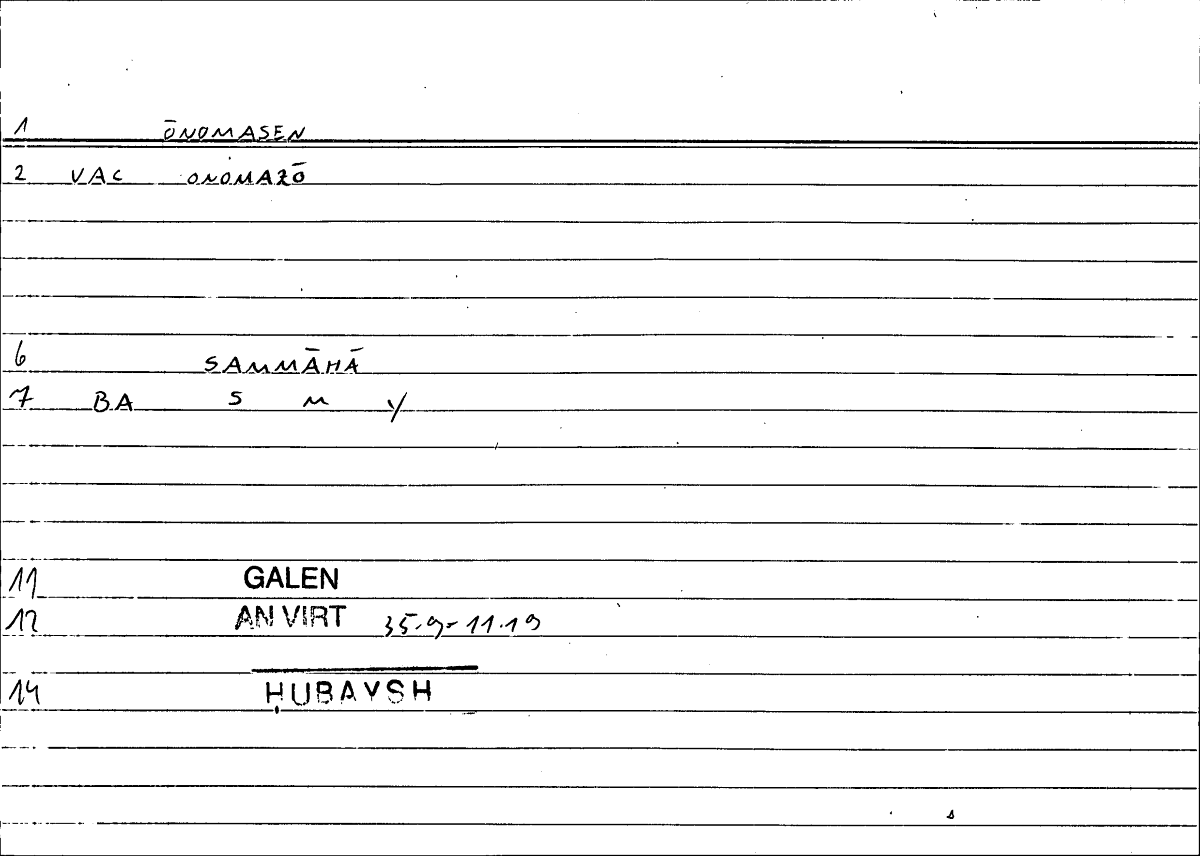 1 ŌNOMASEN
2 VAC ONOMAZŌ
6 SAMMĀHĀ
7 BA S M Y
11 GALEN
12 AN VIRT 35.9-11.19
14 ḤUBAYSH